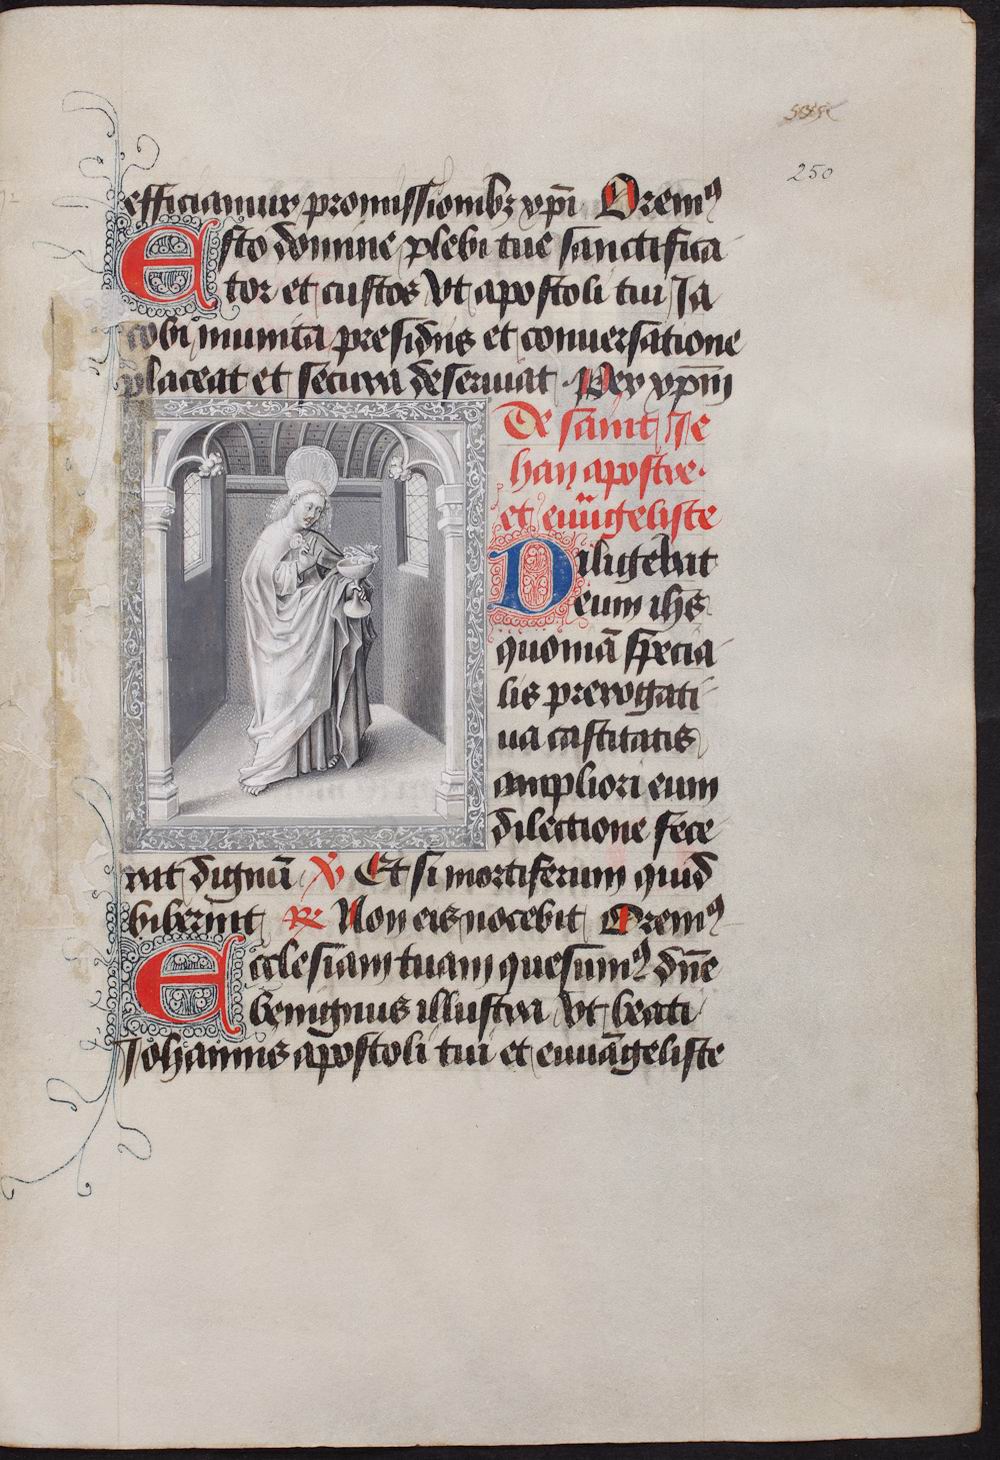 250
efficiamur promissionibȝ xp̄i Oremꝰ
Esto domine plebi tue sanctifica
tor et custos Vt apostoli tui Ja
cobi munita presidiis et conuersatione
placeat et secura deseruiat Per xp̄m
De saint Je
han apostre.
et euuāgeliste
Diligebat
eum ihs
quoniā specia
lis prerogati
ua castitatis
ampliori eum
dilectione fece
rat dignū ꝟ Et si mortiferum quid
biberīt ℟ Non eis nocebit Oremꝰ
Ecclesiam tuam quesumꝰ dn̄e
benignus illustra Vt beati
Johannis apostoli tui et euuāgeliste